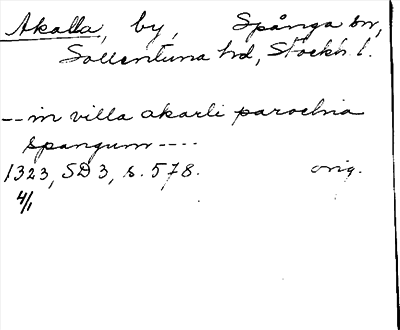 Akalla, by, Spånga sn,
Sollentuna hd, Stockh. l.
-- in villa akarli parochia
spangum ----
1323, SD 3, s. 578. orig.
4/1